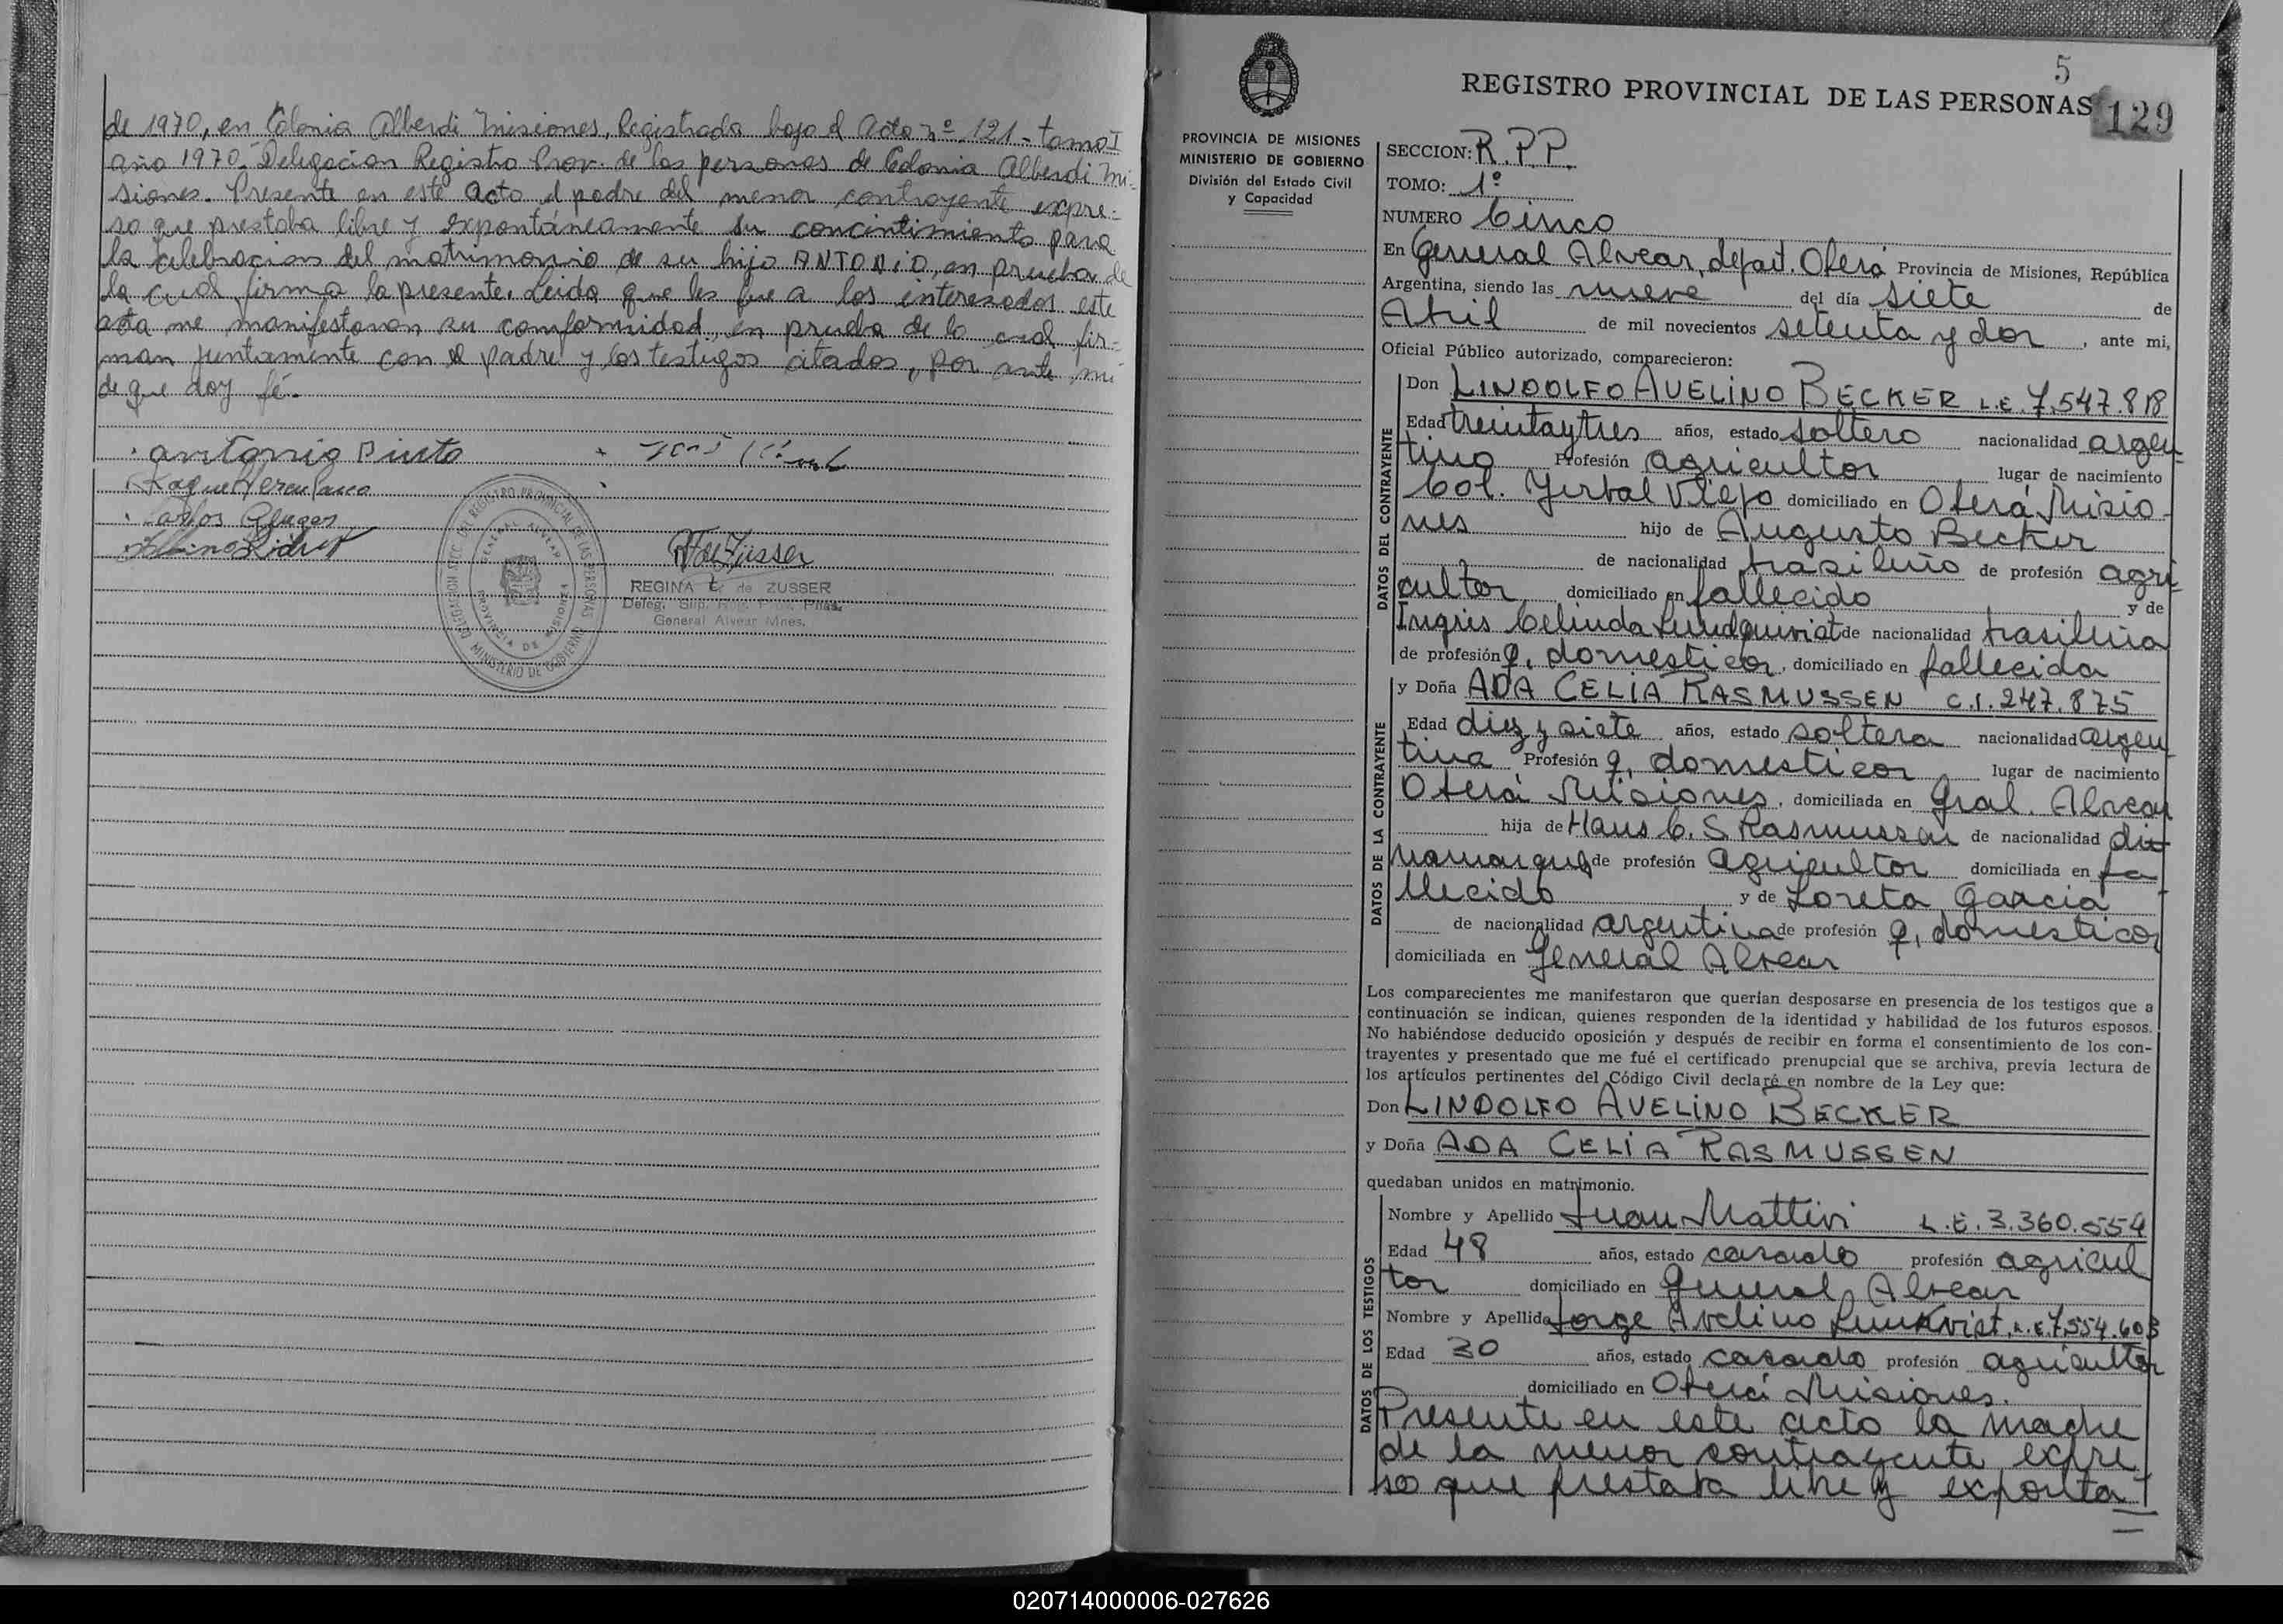 de 1970, en Colonia Alberdi Misiones, Registrada bajo el Acta nº 121 - tomo I
año 1970. Delegacion Registro Prov. de las personas de Colonia Alberdi Mi-
siones. Presente en este acto el padre del menor contrayente expre-
so que prestaba libre y expontáneamente su concintimiento para
la celebracion del matrimonio de su hijo ANTONIO, en prueba de
la cual firma la presente. Leida que les fue a los interesados este
acta me manifestaron su conformidad, en prueba de lo cual fir-
man juntamente con el padre y los testigos citados, por ante mi
de que doy fé.
Antonio Pinto
Raquel
Carlos
REGISTRO PROVINCIAL DE LAS PERSONAS
GENERAL ALVEAR
PROVINCIA DE MISIONES
MINISTERIO DE GOBIERNO
REGINA de ZUSSER
Deleg. Sup. Reg. Prov. Pnas.
General Alvear Mnes.
5
REGISTRO PROVINCIAL DE LAS PERSONAS 129
PROVINCIA DE MISIONES
MINISTERIO DE GOBIERNO
División del Estado Civil
y Capacidad
SECCION: R.P.P.
TOMO: 1º
NUMERO Cinco
En General Alvear, depart. Oberá Provincia de Misiones, República
Argentina, siendo las nueve del día siete de
Abril de mil novecientos setenta y dos, ante mi,
Oficial Público autorizado, comparecieron:
DATOS DEL CONTRAYENTE
Don LINDOLFO AVELINO BECKER L.E. 7.547.818
Edad treinta y tres años, estado soltero nacionalidad argen
tino Profesión agricultor lugar de nacimiento
Col. Yerbal Viejo domiciliado en Oberá Misio-
nes hijo de Augusto Becker
de nacionalidad brasileño de profesión agri
cultor domiciliado en fallecido y de
Ingris Celinda Lundquviat de nacionalidad brasileña
de profesión q. domesticos, domiciliado en fallecida
DATOS DE LA CONTRAYENTE
y Doña ADA CELIA RASMUSSEN C.I. 247.875
Edad diez y siete años, estado soltera nacionalidad argen
tina Profesión q. domesticos lugar de nacimiento
Oberá Misiones, domiciliada en Gral. Alvear
hija de Hans C. S. Rasmussen de nacionalidad di
namarques de profesión agricultor domiciliada en fa
llecido y de Loreta Garcia
de nacionalidad argentina de profesión q. domesticos
domiciliada en General Alvear
Los comparecientes me manifestaron que querían desposarse en presencia de los testigos que a
continuación se indican, quienes responden de la identidad y habilidad de los futuros esposos.
No habiéndose deducido oposición y después de recibir en forma el consentimiento de los con-
trayentes y presentado que me fué el certificado prenupcial que se archiva, previa lectura de
los artículos pertinentes del Código Civil declaré en nombre de la Ley que:
Don LINDOLFO AVELINO BECKER
y Doña ADA CELIA RASMUSSEN
quedaban unidos en matrimonio.
DATOS DE LOS TESTIGOS
Nombre y Apellido Juan Mattivi L.E. 3.360.554
Edad 48 años, estado casado profesión agricul
tor domiciliado en General Alvear
Nombre y Apellido Jorge Avelino Lunkvist, L.E. 7.554.603
Edad 30 años, estado casado profesión agricultor
domiciliado en Oberá Misiones.
Presente en este acto la madre
de la menor contrayente expre
so que prestaba libre y exponta
020714000006-027626